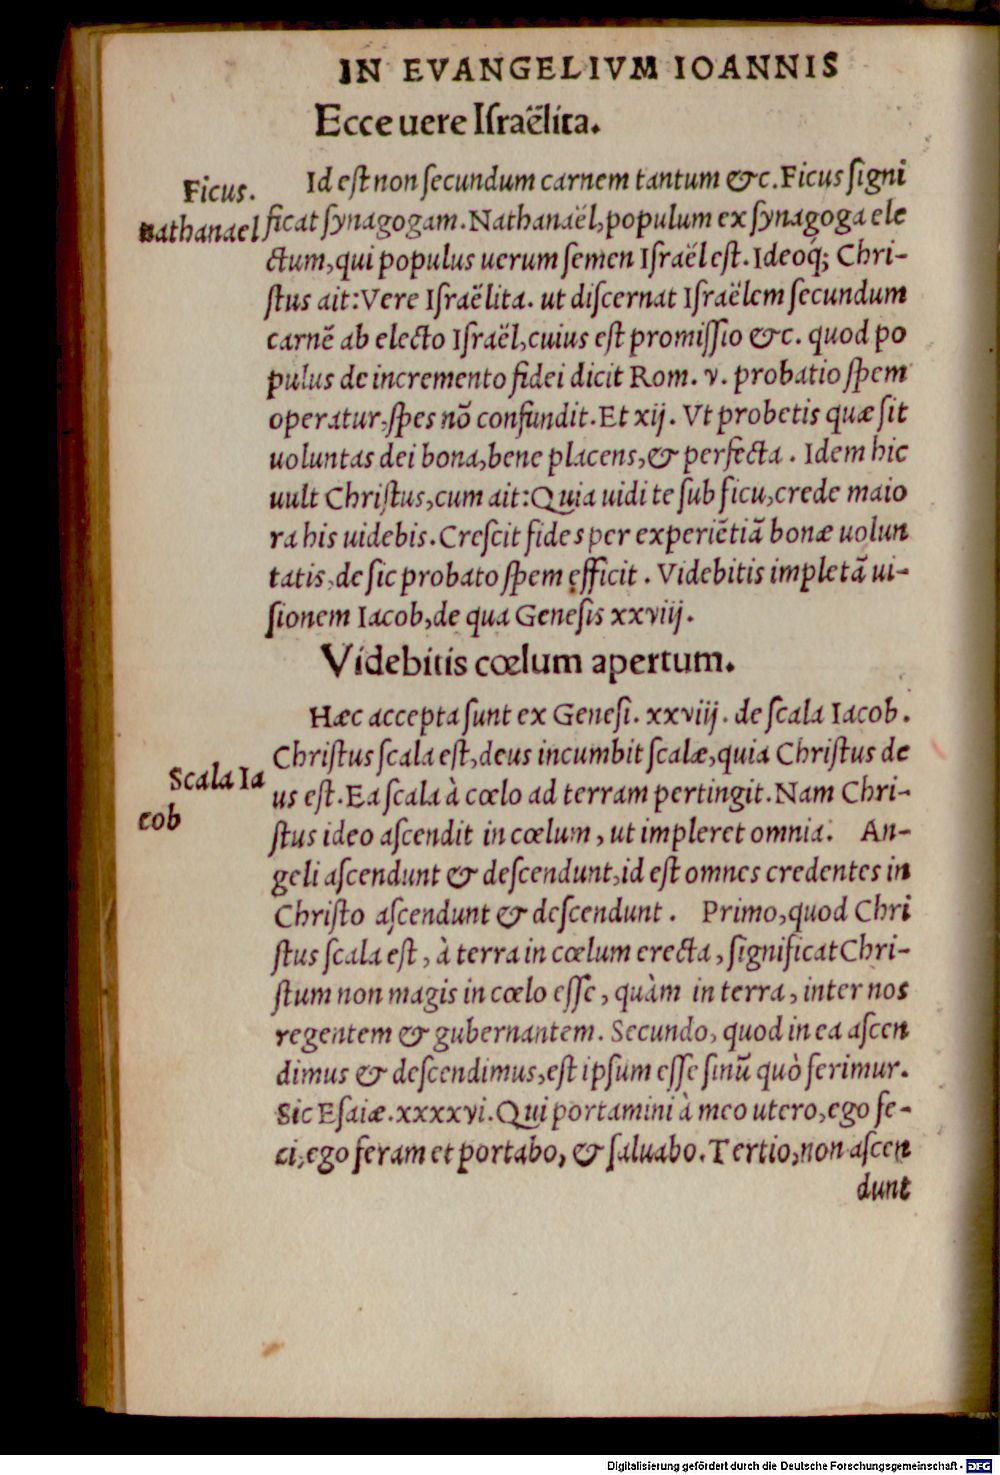 IN EVANGELIVM IOANNIS
Ecce uere Iſraëlita.
Ficus.
Nathanael
Id eſt non ſecundum carnem tantum &c. Ficus ſigni
ficat ſynagogam. Nathanaël, populum ex ſynagoga ele
ctum, qui populus uerum ſemen Iſraël eſt. Ideoq́; Chri-
ſtus ait: Vere Iſraëlita. ut diſcernat Iſraëlem ſecundum
carnē ab electo Iſraël, cuius eſt promiſſio &c. quod po
pulus de incremento fidei dicit Rom. v. probatio ſpem
operatur, ſpes nō confundit. Et xij. Vt probetis quæ ſit
uoluntas dei bona, bene placens, & perfecta. Idem hic
uult Chriſtus, cum ait: Quia uidi te ſub ficu, crede maio
ra his uidebis. Creſcit fides per experiētiā bonæ uolun
tatis, de ſic probato ſpem efficit. Videbitis impletā ui-
ſionem Iacob, de qua Geneſis xxviij.
Videbitis cœlum apertum.
Scala Ia
cob
Hæc accepta ſunt ex Geneſi. xxviij. de ſcala Iacob.
Chriſtus ſcala eſt, deus incumbit ſcalæ, quia Chriſtus de
us eſt. Ea ſcala à cœlo ad terram pertingit. Nam Chri-
ſtus ideo aſcendit in cœlum, ut impleret omnia. An-
geli aſcendunt & deſcendunt, id eſt omnes credentes in
Chriſto aſcendunt & deſcendunt. Primo, quod Chri
ſtus ſcala eſt, à terra in cœlum erecta, ſignificat Chri-
ſtum non magis in cœlo eſſe, quàm in terra, inter nos
regentem & gubernantem. Secundo, quod in ea aſcen
dimus & deſcendimus, eſt ipſum eſſe ſinū quò ferimur.
Sic Eſaiæ. xxxxvi. Qui portamini à meo utero, ego fe-
ci, ego feram et portabo, & ſaluabo. Tertio, non aſcen
dunt
Digitalisierung gefördert durch die Deutsche Forschungsgemeinschaft - DFG